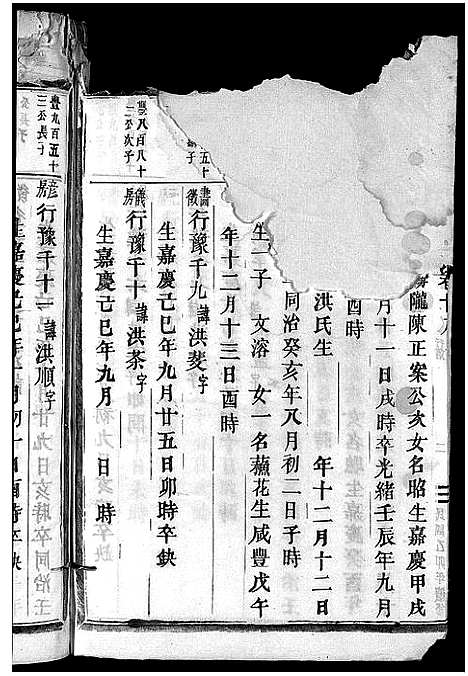 卷十八
隴陳正案公亥女名昭生嘉慶甲戌
月十一日戌時卒光緒壬辰年九月
酉時
洪氏生　年十二月十二日
同治癸亥年八月初二日子時
生一子　文溶　女一名蘓花生咸豐戊午
年十二月十三日酉時
五十
子
行豫千九諱洪斐字
生嘉慶己巳年九月廿五日卯時卒缺
豐八百八十
三公次子
儀房行豫千十諱洪茶字
生嘉慶己巳年九月　日　時
豐九百五十
三公長子
行豫千十一諱洪順字
生嘉慶己巳年
民國乙卯年續修